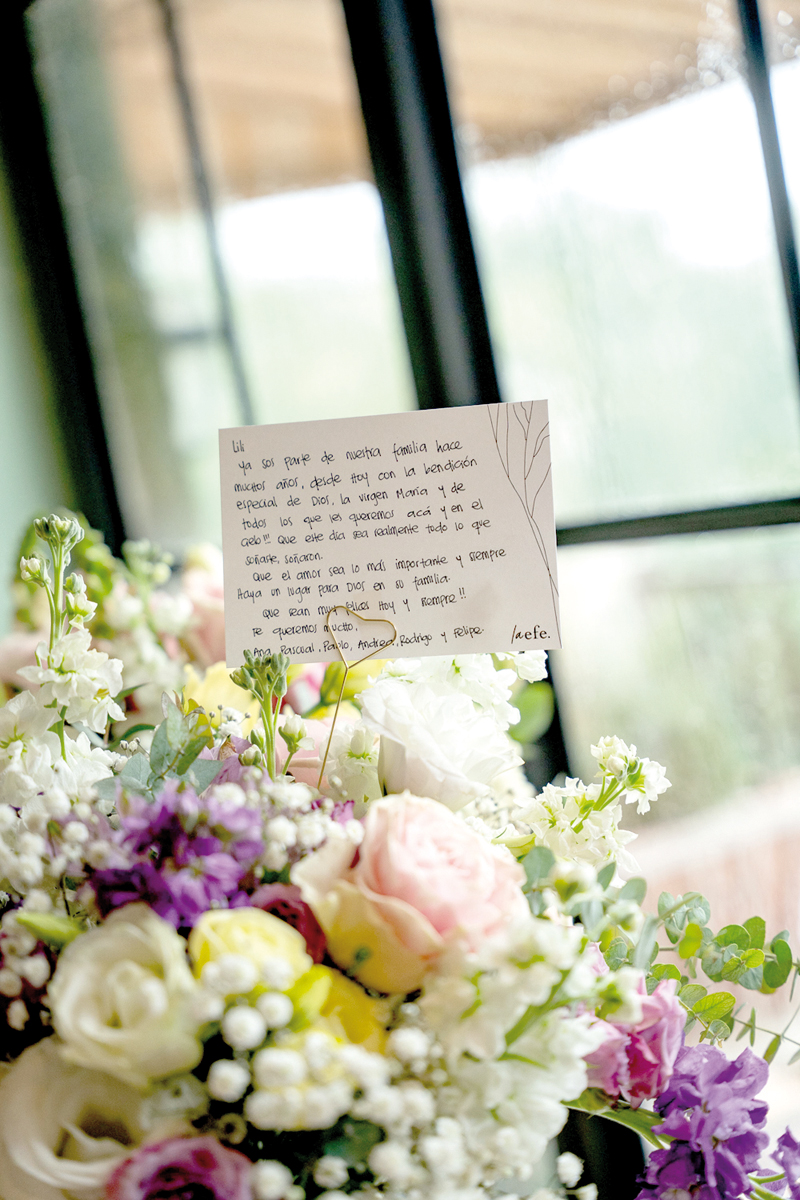 Lili
Ya sos parte de nuestra familia hace
muchos años, desde Hoy con la bendición
especial de Dios, la virgen María y de
todos los que les queremos acá y en el
cielo!!! Que este día sea realmente todo lo que
soñaste, soñaron.
Que el amor sea lo más importante y siempre
Haya un lugar para Dios en su familia.
Que sean muy felices Hoy y siempre!!
Te queremos mucho,
Ana, Pascual, Pablo, Andrea, Rodrigo y Felipe.
/aefe.